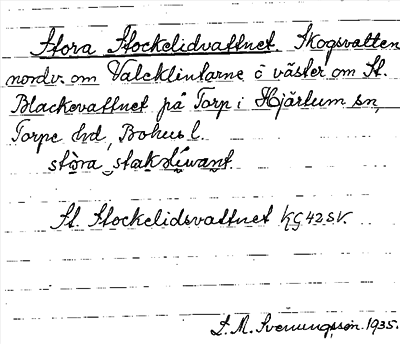 Stora Stockelidvattnet. Skogsvatten
nordv. om Valeklintarne o väster om St.
Blackevattnet på Torp i Hjärtum sn,
Torpe hd, Bohus l.
St. Stockelidsvattnet KG 42 SV.
S. M. Svenungsson. 1935.